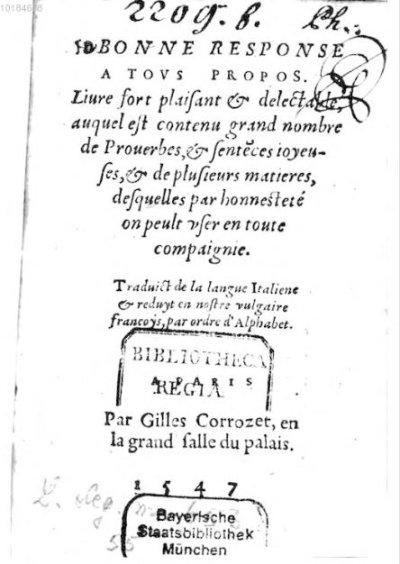 10184668
2209. b.
Ph.
BONNE RESPONSE
A TOVS PROPOS.
Liure fort plaisant & delectable,
auquel est contenu grand nombre
de Prouerbes, & sentẽces ioyeu-
ses, & de plusieurs matieres,
desquelles par honnesteté
on peult vser en toute
compaignie.
Traduict de la langue Italiene
& reduyt en nostre vulgaire
francoys, par ordre d'Alphabet.
BIBLIOTHECA
A PARIS
REGIA
Par Gilles Corrozet, en
la grand salle du palais.
1 5 4 7
Bayerische
Staatsbibliothek
München